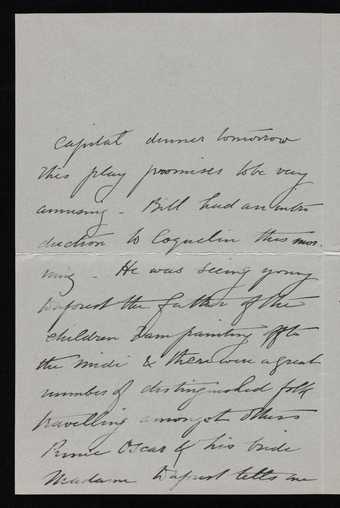 capital dinner tomorrow
this play promises to be very
amusing - Bill had an intro
duction to Coquelin this mor.
ning - He was seeing young
the father of the
children I am painting off to
the Midi & there were a great
number of distinguished folk
travelling amongst others
Prince Oscar & his bride
Madame tells me